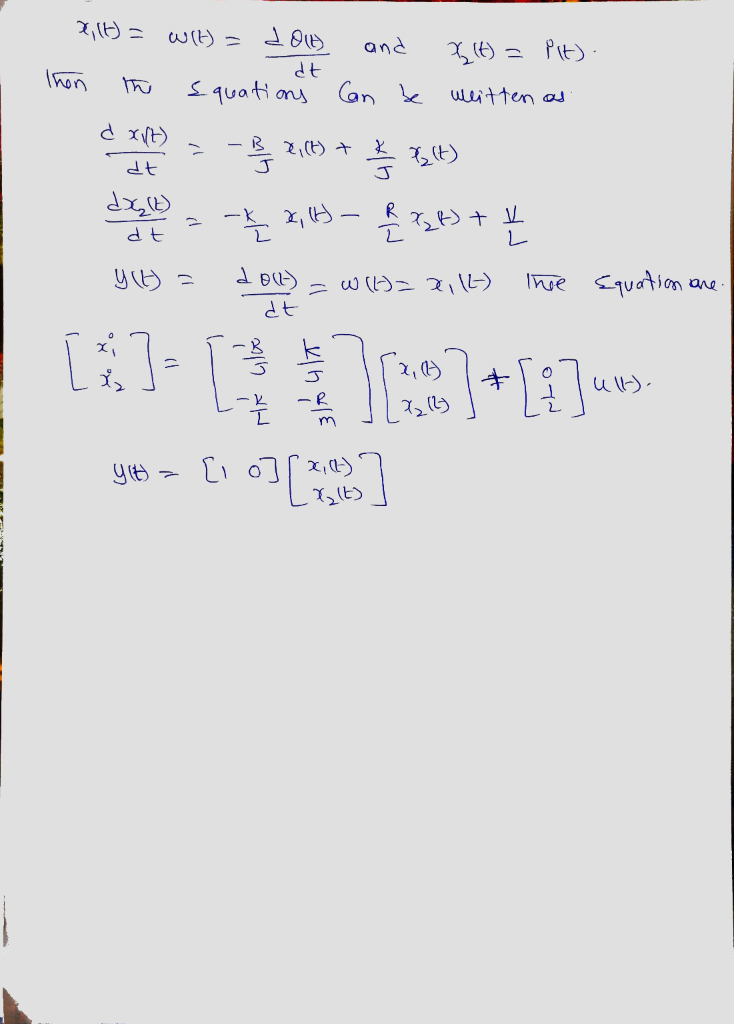 x₁(t) = ω(t) = dθ(t)/dt and x₂(t) = i(t).
Then the Equations Can be written as
d x₁(t)/dt = -B/J x₁(t) + K/J x₂(t)
dx₂(t)/dt = -K/L x₁(t) - R/L x₂(t) + V/L
y(t) = dθ(t)/dt = ω(t) = x₁(t) These Equation are.
[ẋ₁ ẋ₂] = [-B/J K/J -K/L -R/m] [x₁(t) x₂(t)] + [0 1/L] u(t).
y(t) = [1 0] [x₁(t) x₂(t)]